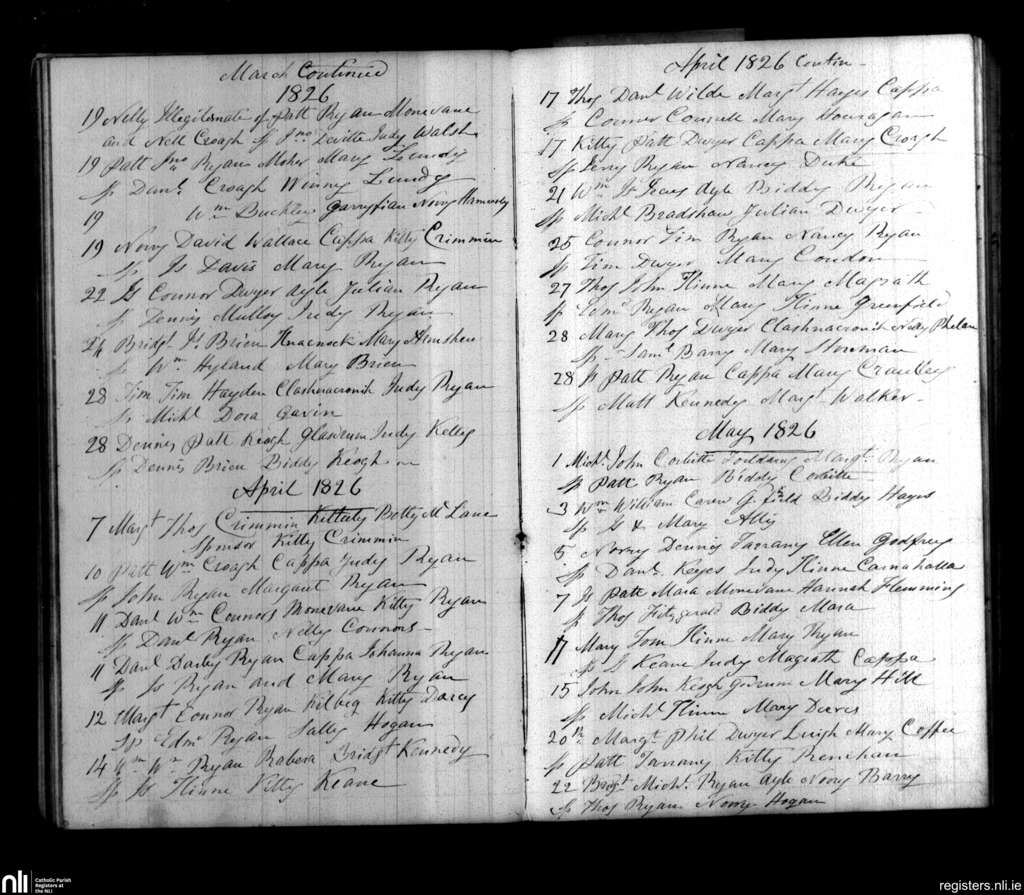 March Continued
1826
19 Nelly Illegitimate of Patt Ryan Monevane
and Nell Croagh Sp Jno Levitte Judy Walsh
19 Patt Jno Ryan Moher Mary Lundy
Sp Danl Croagh Winney Lundy
19 Wm Buckley Garryfian Norry
19 Norry David Wallace Cappa Kitty Crimmin
Sp Js Davis Mary Ryan
22 Js Connor Dwyer Ayle Julian Ryan
Sp Dennis Mulloy Judy Ryan
24 Bridgt Js Brien Knacnock Mary
Sp Wm Hyland Mary Brien
28 Tim Tim Hayden Clashnacronih Judy Ryan
Sp Michl Dora Gavin
28 Dennis Patt Keogh Glassrum Judy Kelly
Sp Dennis Brien Biddy Keogh
April 1826
7 Margt Thos Crimmin Kiltaly Betty Mc Lane
Sponsor Kitty Crimmin
10 Patt Wm Croagh Cappa Judy Ryan
Sp John Ryan Margaret Ryan
11 Danl Wm Connors Monevane Kitty Ryan
Sp Danl Ryan Nelly Connors
11 Danl Darby Ryan Cappa Johanna Ryan
Sp Js Ryan and Mary Ryan
12 Margt Connor Ryan Kilbeg Kitty Darcy
Sp Edmd Ryan Sally Hogan
14 Wm Wm Ryan Bridgt Kennedy
Sp Js Kinne Kitty Keane
April 1826 Contin
17 Thos Danl Wilde Margt Hayes Cappa
Sp Connor Mary
17 Kitty Patt Dwyer Cappa Mary Croagh
Sp Jerry Ryan Nancy Duke
21 Wm Js Ayle Biddy Ryan
Sp Michl Bradshaw Julian Dwyer
25 Connor Tim Ryan Nancy Ryan
Sp Tim Dwyer Mary Condon
27 Thos John Kinne Mary Magrath
Sp Ryan Mary Kinne Greenfield
28 Mary Thos Dwyer Clashnacronih Norry Phelan
Sp Saml Barry Mary
28 Js Patt Ryan Cappa Mary Crawley
Sp Matt Kennedy Margt Walker
May 1826
1 Michl John Corbitte Margt Ryan
Sp Patt Ryan Biddy Corbitte
3 Wm William Biddy Hayes
Sp Js & Mary
5 Norry Dennis Tarrany Ellen Godfrey
Sp Danl Keyes Judy Kinne Carnahalla
7 Js Patt Mara Monevane Hannah Flemming
Sp Thos Fitzgerald Biddy Mara
11 Mary Tom Kinne Mary Ryan
Sp J Keane Judy Magrath Cappa
15 John John Keogh Mary Hill
Sp Michl Kinne Mary
20th Margt Phil Dwyer Mary Coffee
Sp Patt Tarrany Kitty Renehan
22 Bridgt Michl Ryan Ayle Norry Barry
Sp Thos Ryan Norry Hogan
nli
Catholic Parish
Registers at
the NLI
registers.nli.ie